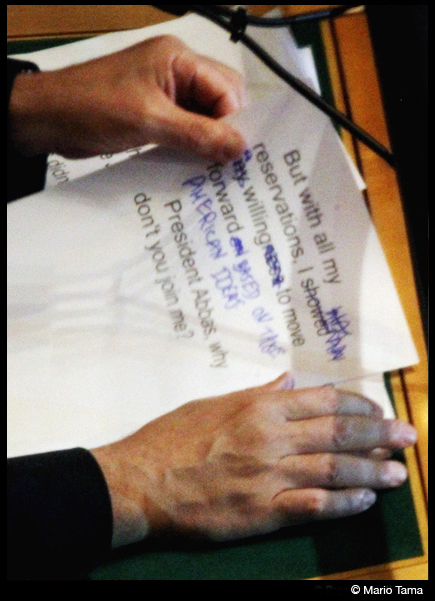 But with all my
reservations, I showed
my willingness to move
forward ON BASED ON THE
AMERICAN IDEAS
President Abbas, why
don't you join me?
didn
© Mario Tama